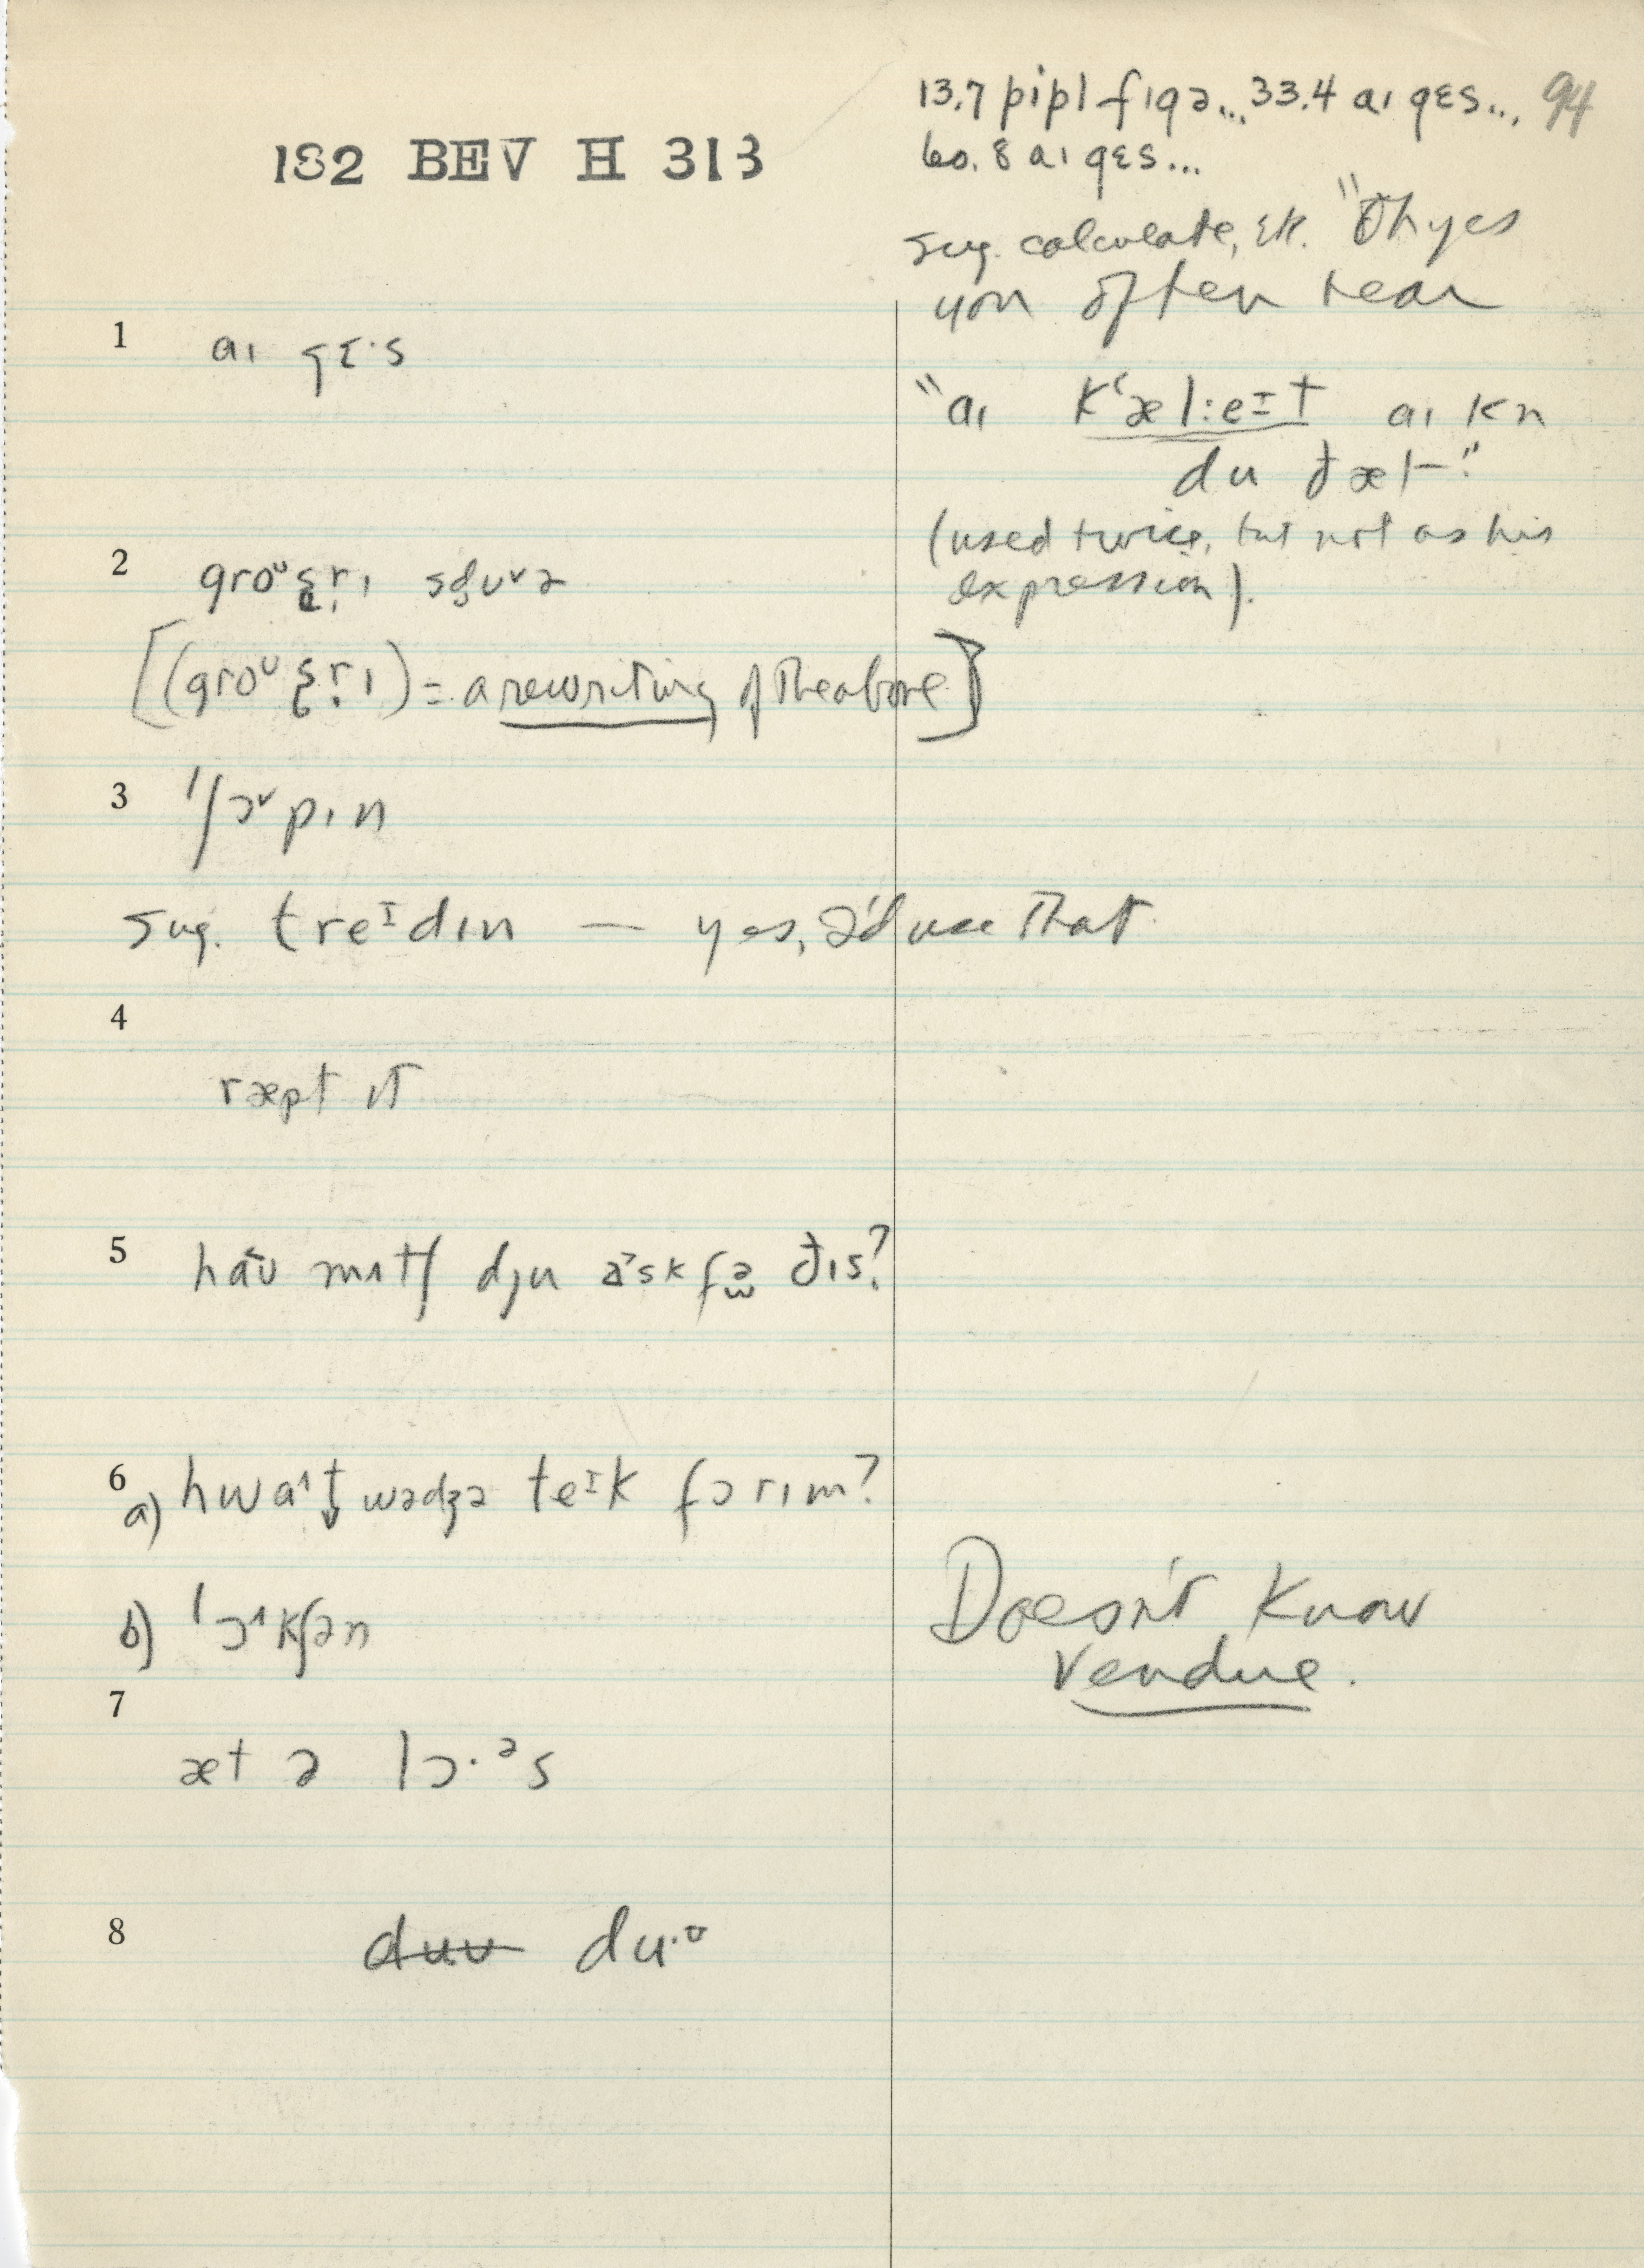 182 BEV H 313
94
13.7 pipl fɪgə... 33.4 aɪ gɛs...,
60.8 aɪ gɛs...
sug. calculate, etc. "Oh yes
you often hear
"aɪ kʻæl:eɪt aɪ kn
du ðæt."
(used twice, but not as his
expression).
1 aɪ gɛ·s
2 groᶷsr̩ɪ
[(groᶷsr̩ɪ) = a rewriting of the above]
3 ˈʃɔ˅pɪn
sug. treᶦdɪn — yes, I'd use that
4
ræpt ɪt
5 haʊ mʌtʃ dju ask fə ðɪs?
6
a) hwa^t̬ wədʒə teᶦk fɔrɪm?
b) ˈɔ^kʃən
Doesn't know
vendue.
7
æt ə lɔ·ᵊs
8 duʊ du·ᶷ